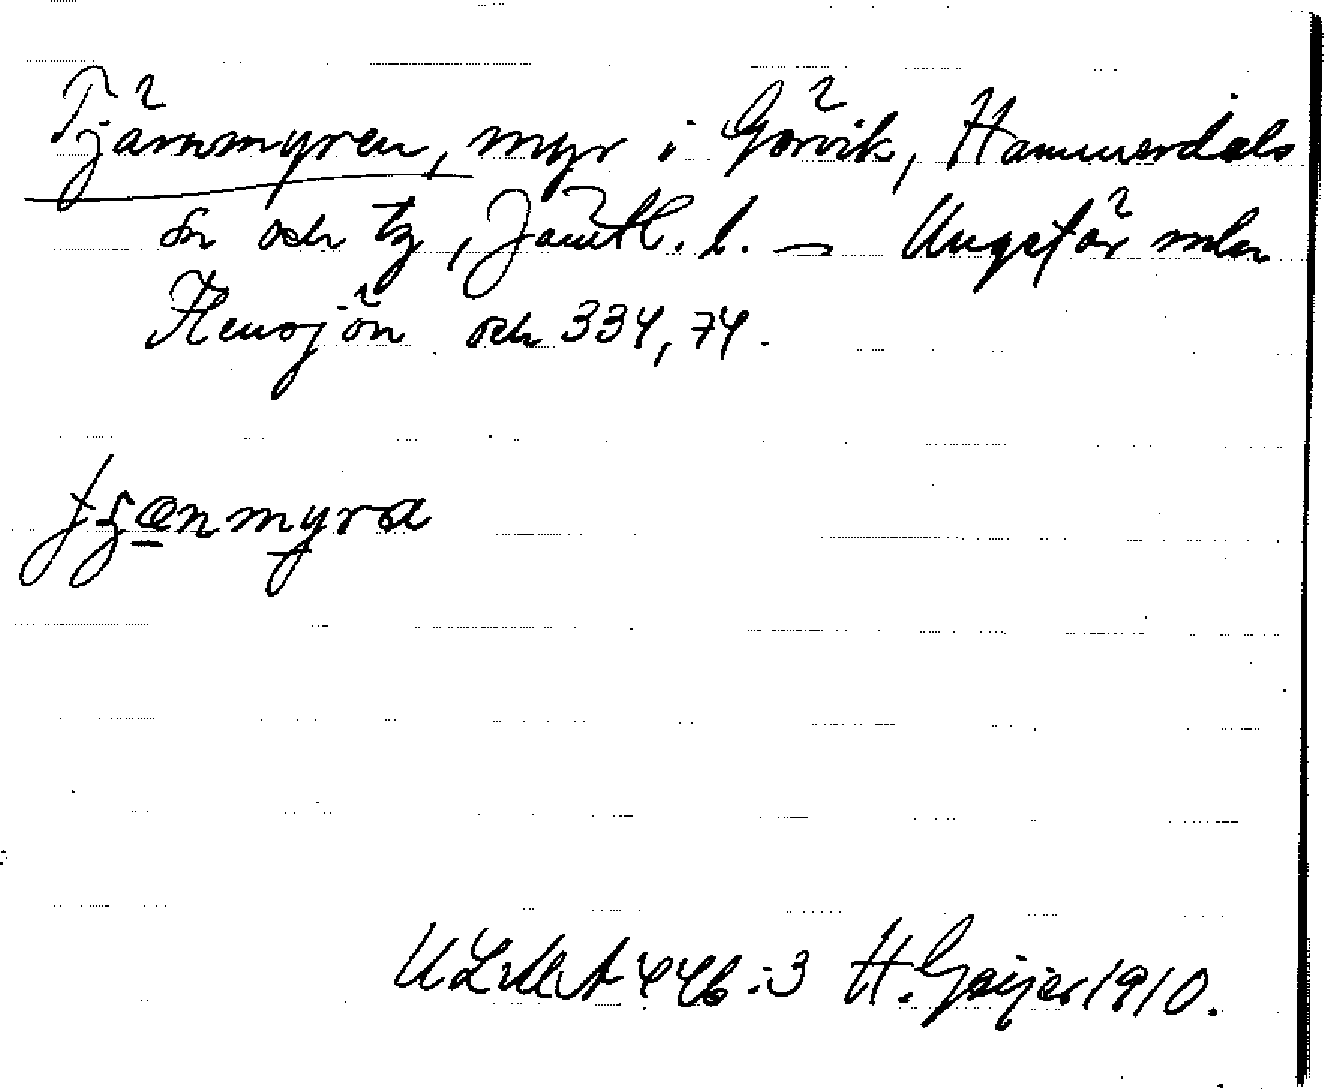 Tjärnmyren, myr i Görvik, Hammerdals
sn och tg, Jämtl. l. – Ungefär mln
Flensjön och 334,74.
myra
ULMA 446:3 H. Geijer 1910.